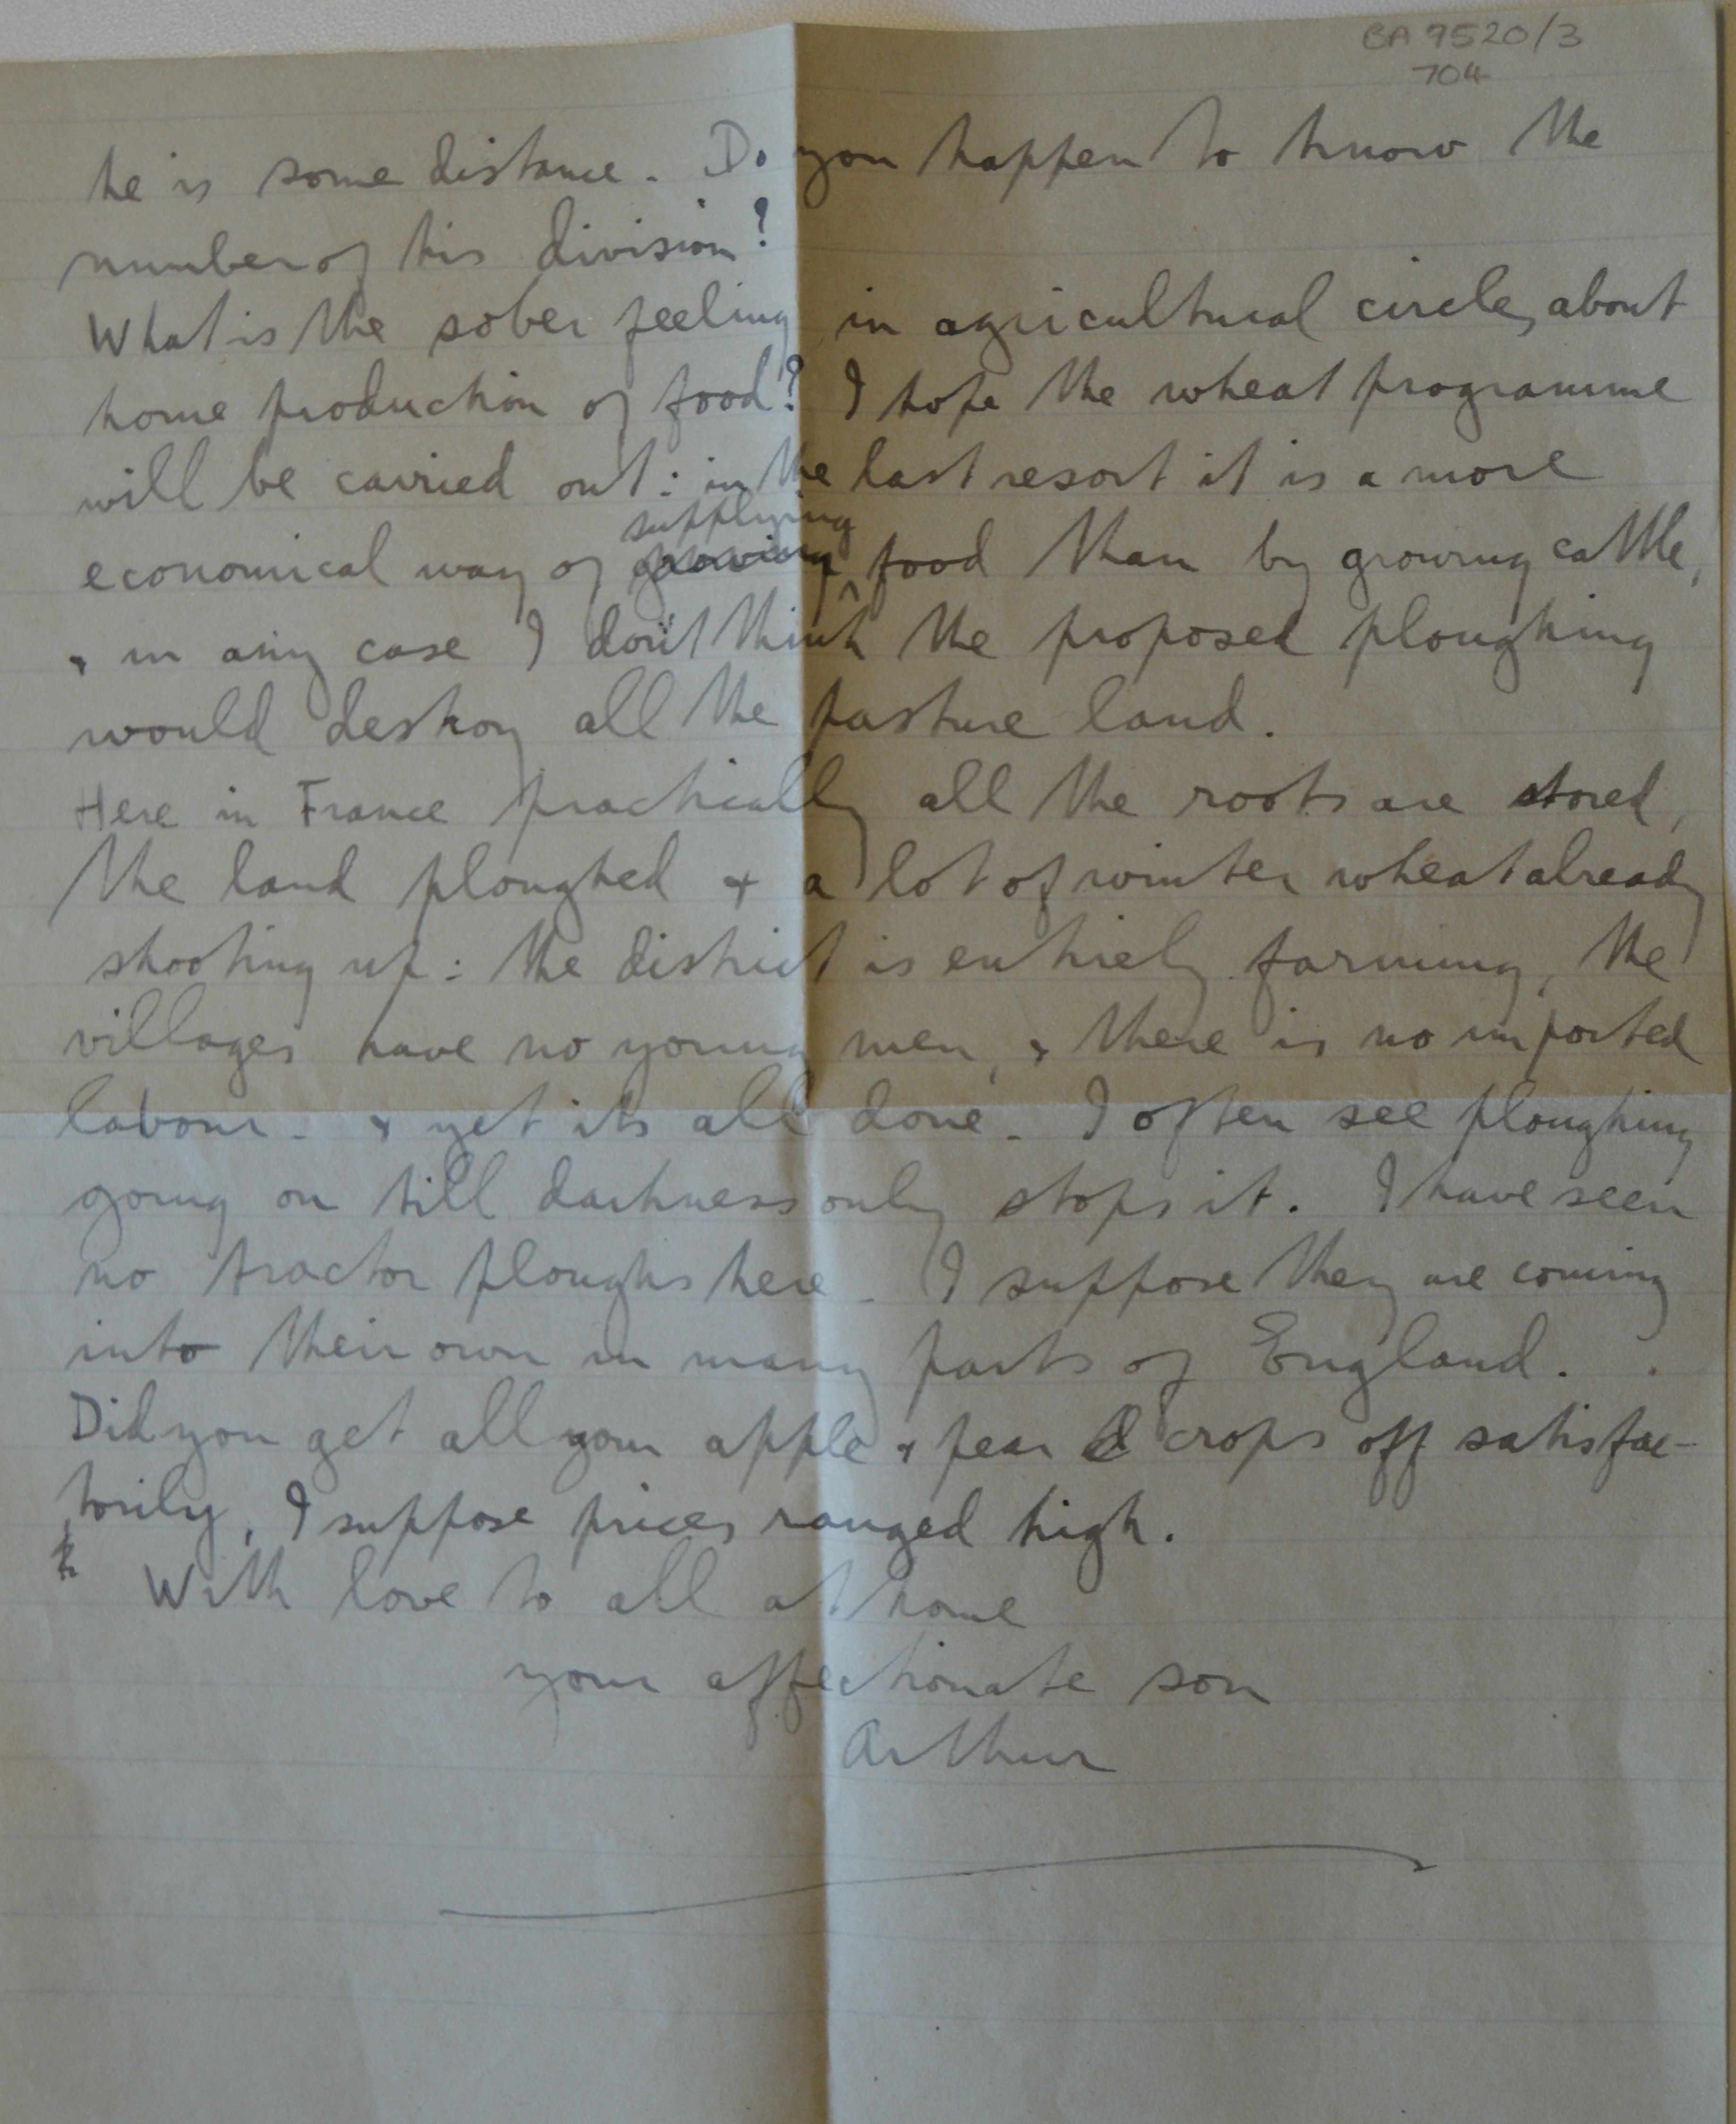 BA 9520/3
704
he is some distance. Do you happen to know the
number of his division?
What is the sober feeling in agricultural circles about
home production of food? I hope the wheat programme
will be carried out: in the last resort it is a more
supplying
economical way of growing food than by growing cattle,
& in any case I don't think the proposed ploughing
would destroy all the pasture land.
Here in France practically all the roots are stored,
the land ploughed & a lot of winter wheat already
shooting up: the district is entirely farming, the
villages have no young men, & there is no imported
labour - & yet its all done. I often see ploughing
going on till darkness only stops it. I have seen
no tractor ploughs here. I suppose they are coming
into their own in many parts of England.
Did you get all your apple & pear crops off satisfac-
torily, I suppose prices ranged high.
With love to all at home
your affectionate son
Arthur